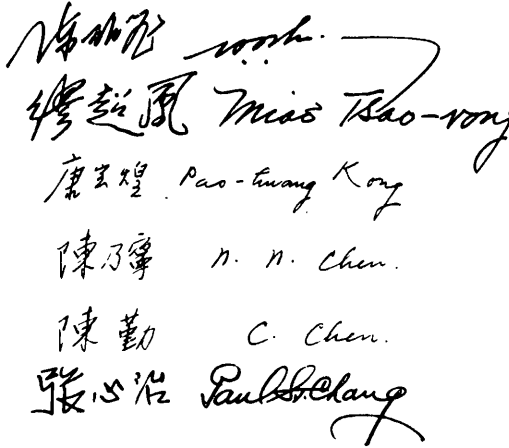 繆超鳳 Miao Tsao-vong
唐宝煌 Pao-hwang Kong
陳乃寧 n. n. Chen.
陳勤 C. Chen.
張心治 Paul S. Chang